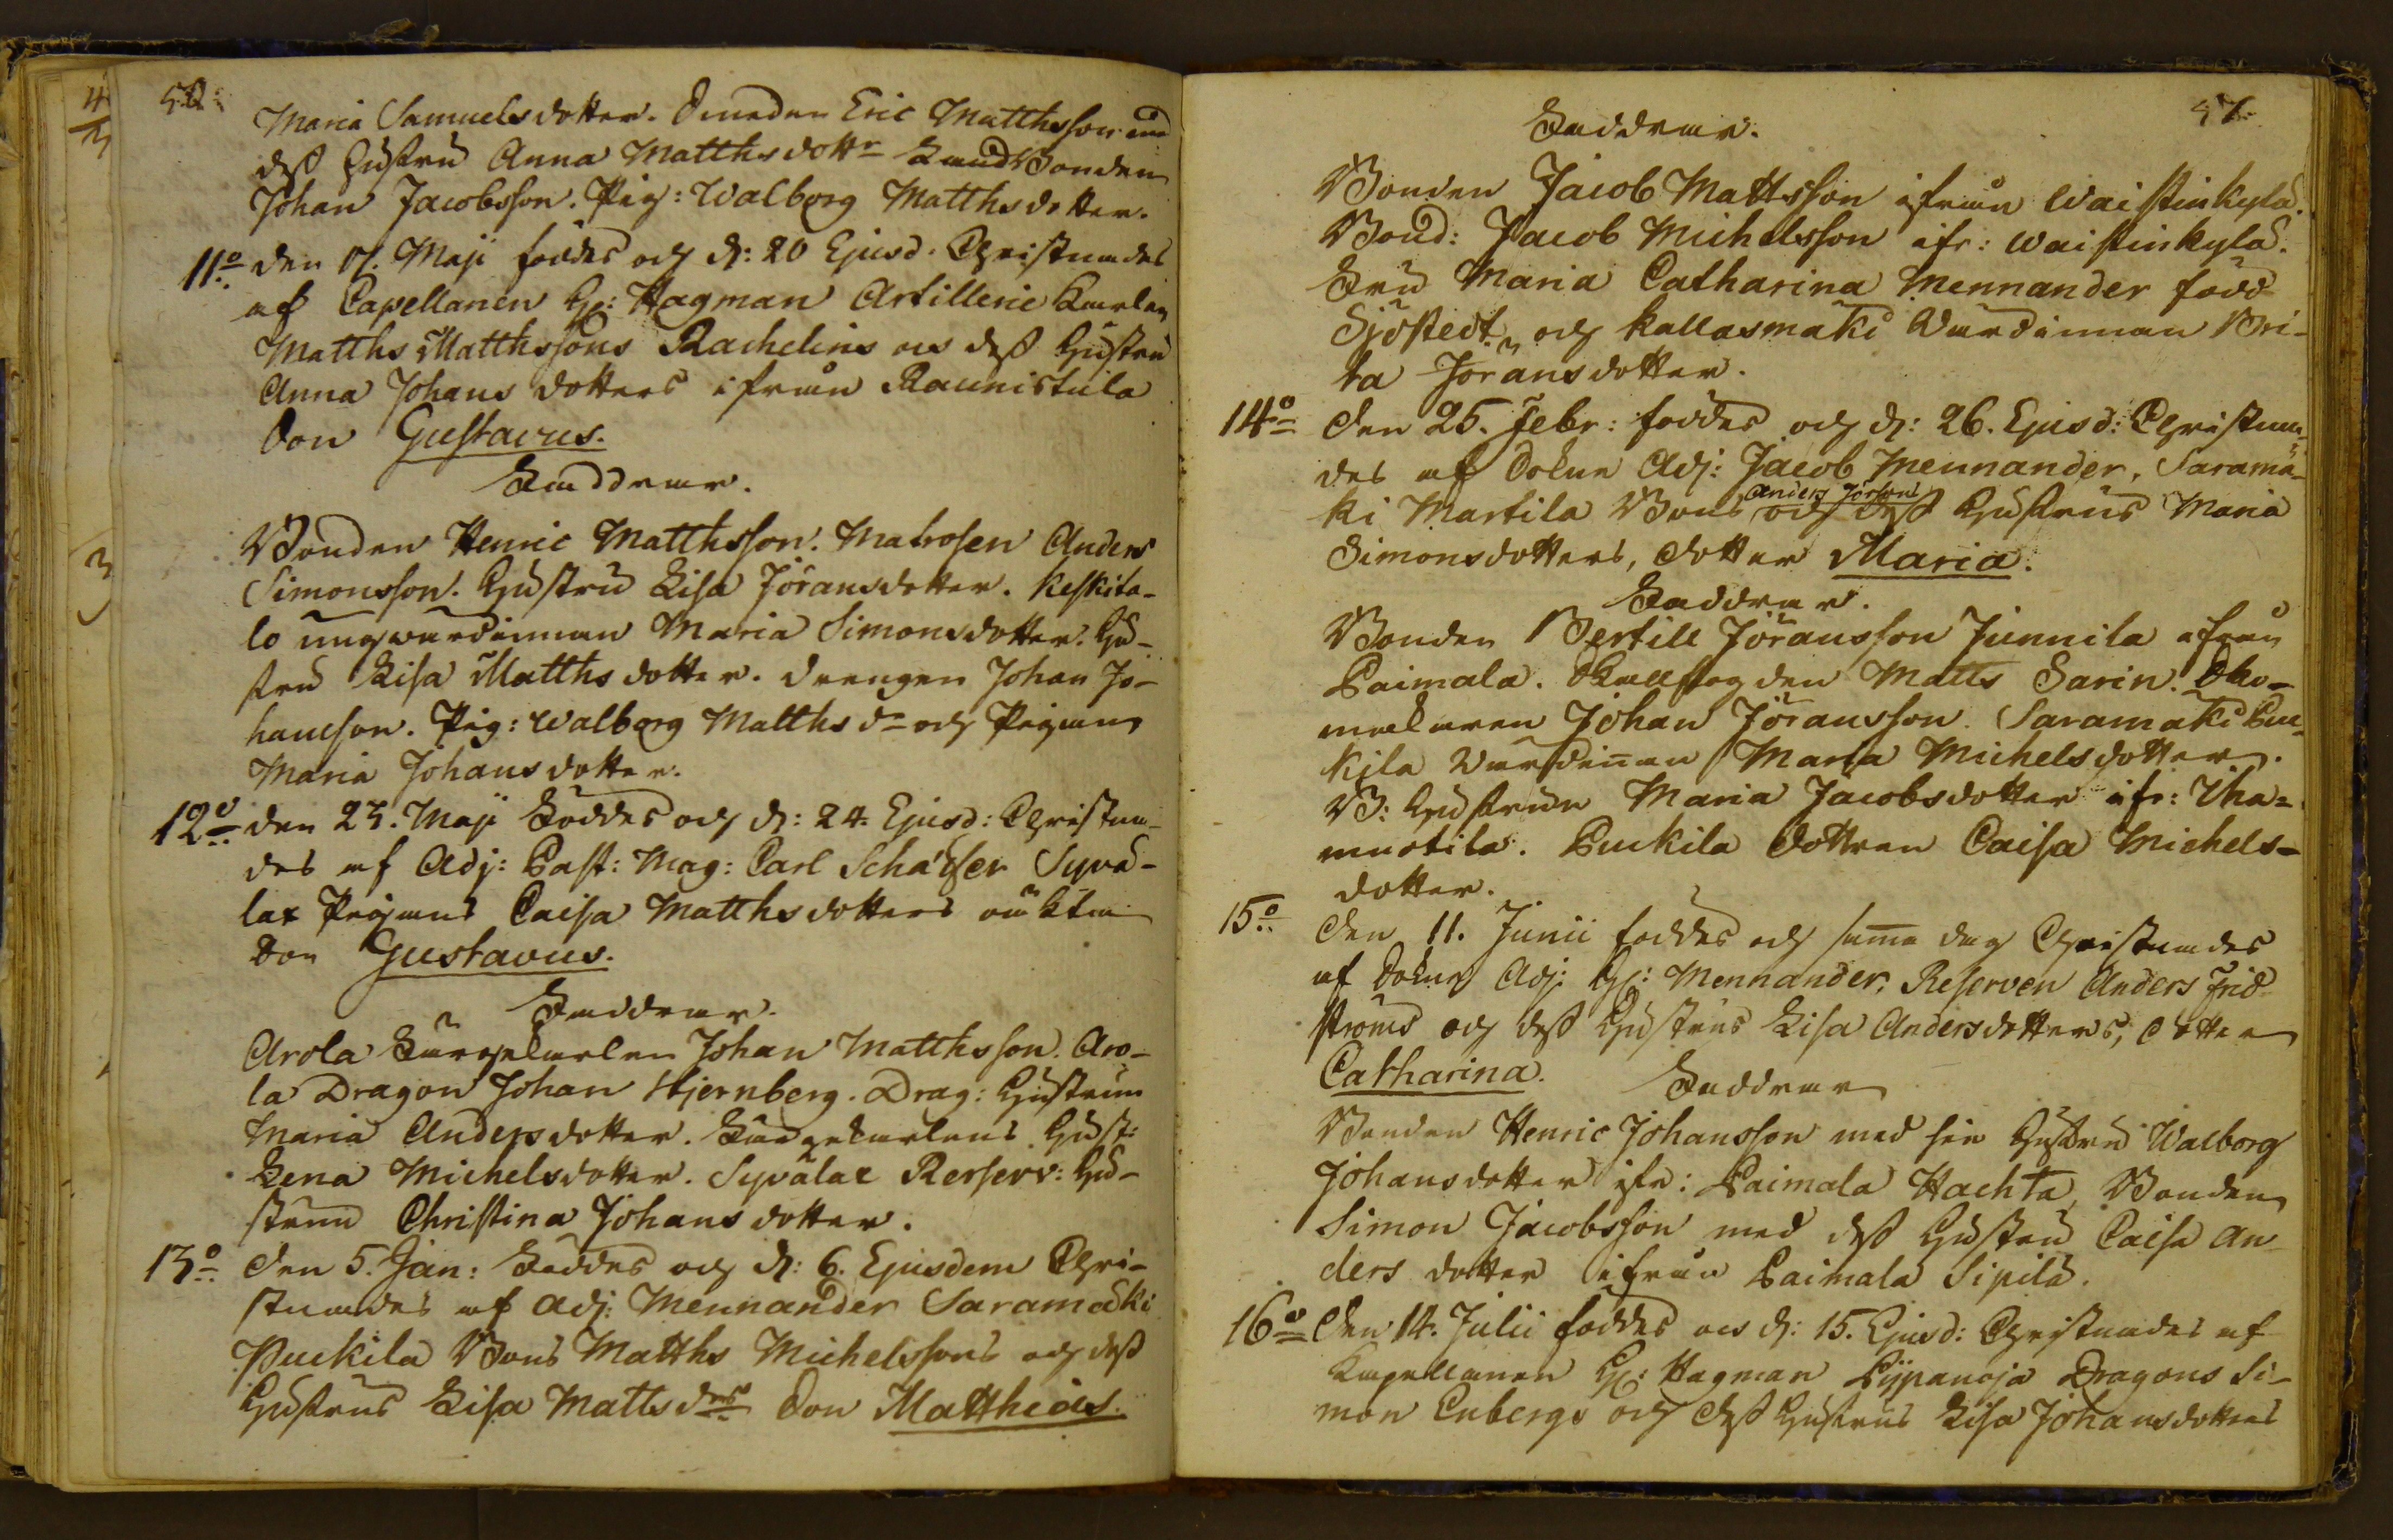 Maria Samuelsdotter. Smeden Eric Matthsson med
dess Hustru Anna Matthsdottr Bonden
Johan Jacobsson. Pig: Walborg Matthsdotter.
11o den 17. Maji föddes och d: 20 Ejusd. Christnades
af Capellanen H: Hagman Artillerie Karlen
Matths Matthssons Rachelins och dess Hustru
Anna Johansdotters ifrån Raunistula
Son Gustavus.
Faddrar.
Bonden Henric Matthsson. Matrosen Anders
Simonsson. Hustru Lisa Jöransdotter. Keskita-
lo ungwärdinnan Maria Simonsdotter. Hu-
stru Lisa Matthsdotter. Drengen Johan Jo-
hansson. Pig: Walborg Matths dr och Pigan
Maria Johansdotter.
12o den 23. Maji Föddes och d: 24. Ejusd: Christna-
des af Adj: Past: Mag: Carl Schäfer Syvä-
lax Pigans Caisa Matthsdotters oäkta
Son Gustavus.
Faddrar.
Arola Färgekarlen Johan Matthsson. Aro-
la Dragon Johan Stjernberg. Drag: Hustrun
Maria Andersdotter. Färgekarlens Hust:
Lena Michelsdotter. Syvälax Reserv: Hu-
strun Christina Johansdotter.
13o Den 5. Jan: Föddes och d: 6. Ejusdem Chri-
stnades af Adj: Mennander Saramäki
Puckila Bons Matths Michelssons och dess
Hustrus Lisa Matts drs Son Matthias.
57.
Faddrar.
Bonden Jacob Mattsson ifrån Waistinkylä.
Bond: Jacob Michelsson ifr: Waistinkylä.
Fru Maria Catharina Mennander född
Sjöstedt, och Kallasmäki Wärdinnan Bri-
ta Jöransdotter.
14o Den 25. Febr: föddes och d: 26. Ejusd: Christna-
des af Sokne Adj: Jacob Mennander, Saramä-
Anders Jörsons
ki Martila Bons och dess Hustrus Maria
Simonsdotters, Dotter Maria.
Faddrar.
Bonden Bertill Jöransson Junnila ifrån
Paimala. Matts Sarin. Sko-
makaren Johan Jöransson. Saramäki Puc-
kila Wärdinnan Maria Michelsdotter.
B: Hustrun Maria Jacobsdotter ifr: Iha-
muotila. Puckila Dottren Caisa Michels-
dotter.
15o Den 11. Junii föddes och samma dag Christnades
af Sokne Adj: H: Mennander, Reserven Anders Frid-
ströms och dess Hustrus Lisa Andersdotters, Dotter
Catharina. Faddrar
Bonden Henric Johansson med sin Hustru Walborg
Johansdotter ifr: Paimala Hachta, Bonden
Simon Jacobsson med dess Hustru Caisa An-
ders dotter ifrån Paimala Sipilä.
16o Den 14. Julii föddes och d: 15. Ejusd: Christnades af
Kapellanen H: Hagman Pyppanoja Dragons Si-
mon Enbergs och dess Hustrus Lisa Johansdotters